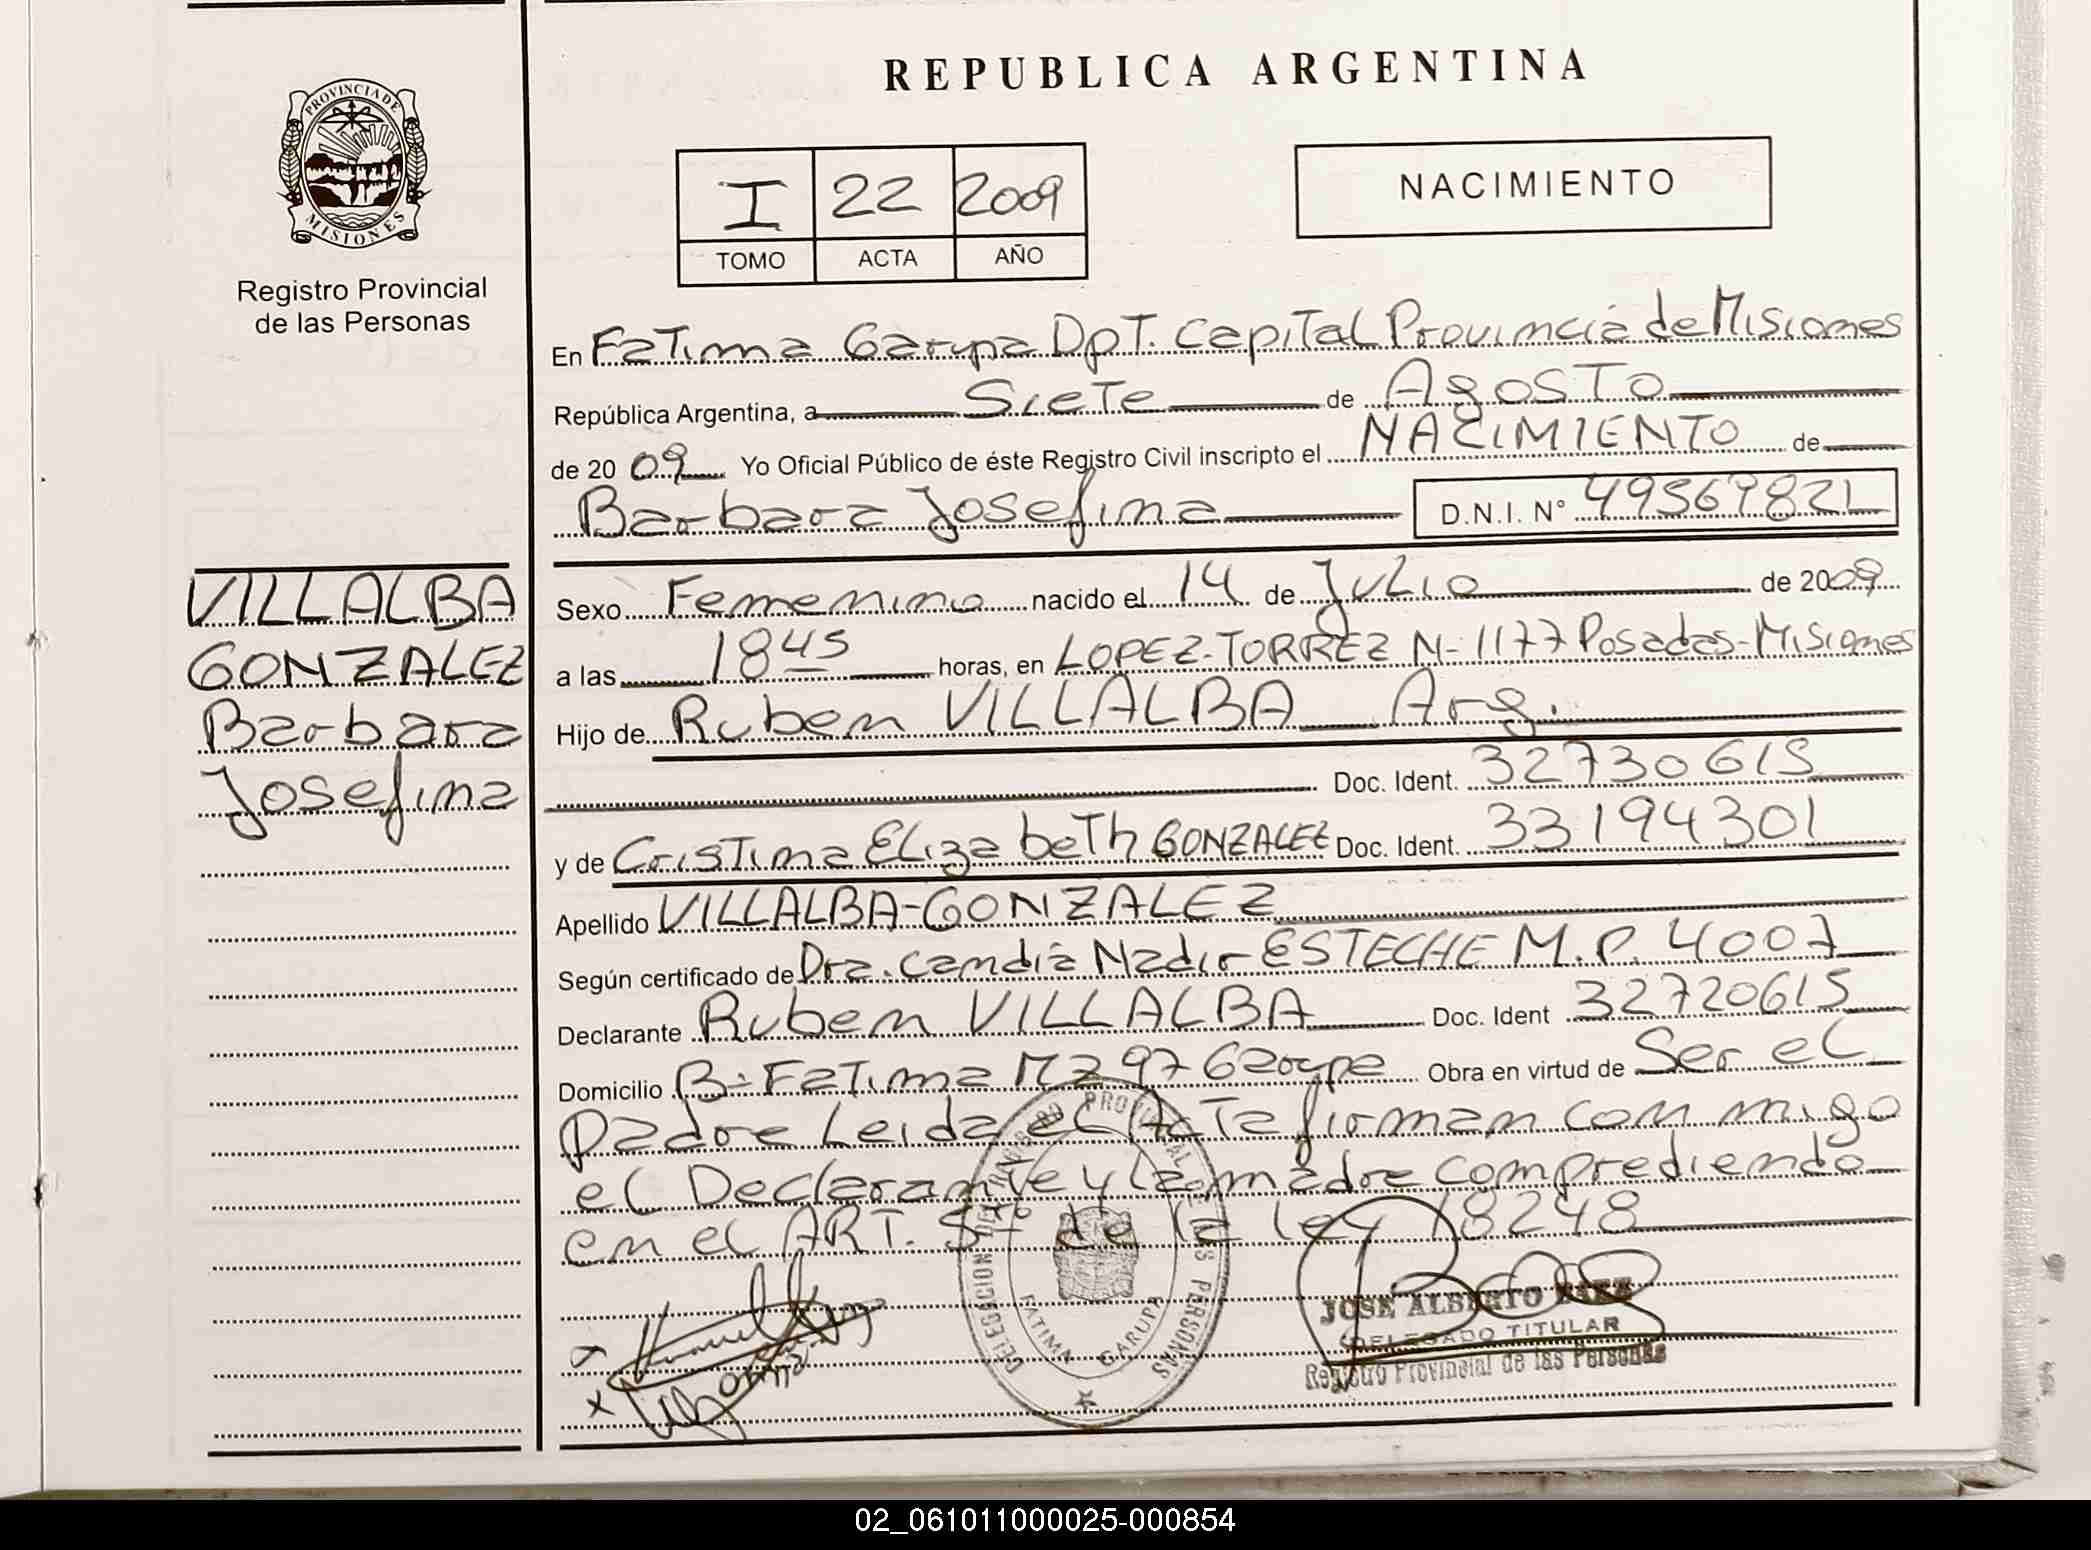 REPUBLICA ARGENTINA
PROVINCIA DE
MISIONES
Registro Provincial
de las Personas
I 22 2009
TOMO ACTA AÑO
NACIMIENTO
En Fatima Garupa Dpt. Capital Provincia de Misiones
República Argentina, a Siete de Agosto
de 2009 Yo Oficial Público de éste Registro Civil inscripto el NACIMIENTO de
Barbara Josefina D.N.I. N° 49569821
VILLALBA
GONZALEZ
Barbara
Josefina
Sexo Femenino nacido el 14 de Julio de 2009
a las 18 45 horas, en LOPEZ-TORREZ N- 1177 Posadas-Misiones
Hijo de Ruben VILLALBA Arg.
Doc. Ident. 32730615
y de Cristina Elizabeth GONZALEZ Doc. Ident. 33194301
Apellido VILLALBA-GONZALEZ
Según certificado de Dra. Candia Nadir ESTECHE M.P. 4007
Declarante Ruben VILLALBA Doc. Ident 32720615
Domicilio B- Fatima Mz 97 Garupa Obra en virtud de Ser el
padre Leida el Acta firman con migo
el Declarante y la madre comprediendo
en el ART. 5to de la ley 18248
DELEGACION REGISTRO PROVINCIAL DE LAS PERSONAS
FATIMA GARUPA
JOSE ALBERTO BAEZ
DELEGADO TITULAR
Registro Provincial de las Personas
02_061011000025-000854